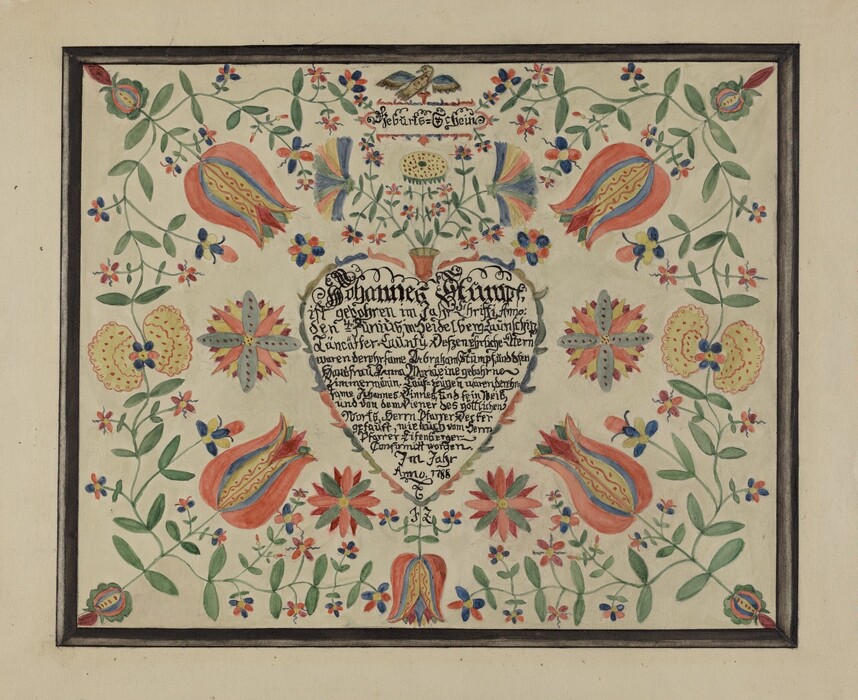 Geburts=Schein
Johannes Stumpf,
ist gebohren im Jahr Christi, Anno:
den Junius in Heidelberg Taunschip,
Lancaster Caunty. Deßen ehrliche Eltern
waren der ehrsame Abraham Stumpf und deßen
Hausfrau Anna Maria eine gebohrne
Zimmermänin. Tauf=Zeugen waren der ehr=
same Johannes und sein Weib,
und von dem Diener des göttlichen
Worts, Herrn Pfarrer
getauft, wie auch vom Herrn
Pfarrer Eisenberger
Confirmirt worden.
Im Jahr
Anno. 1788